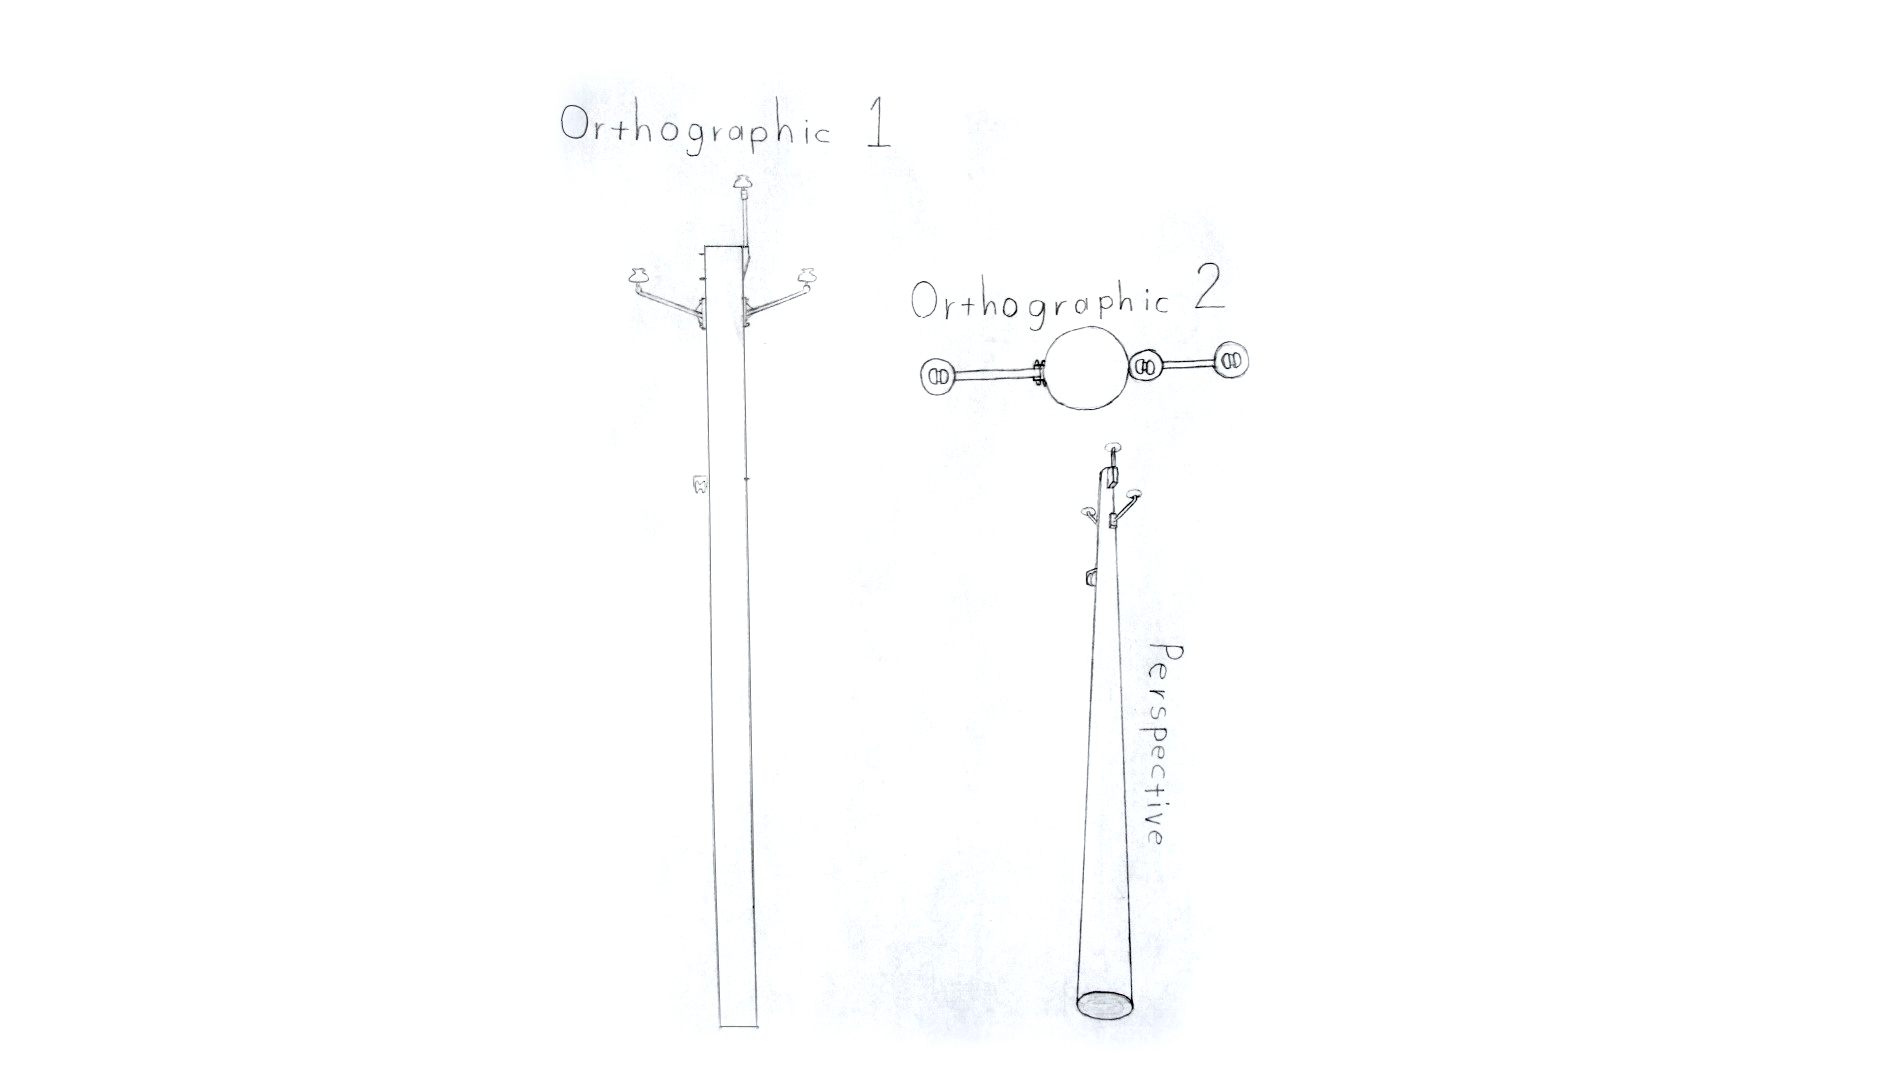 Orthographic 1
Orthographic 2
Perspective